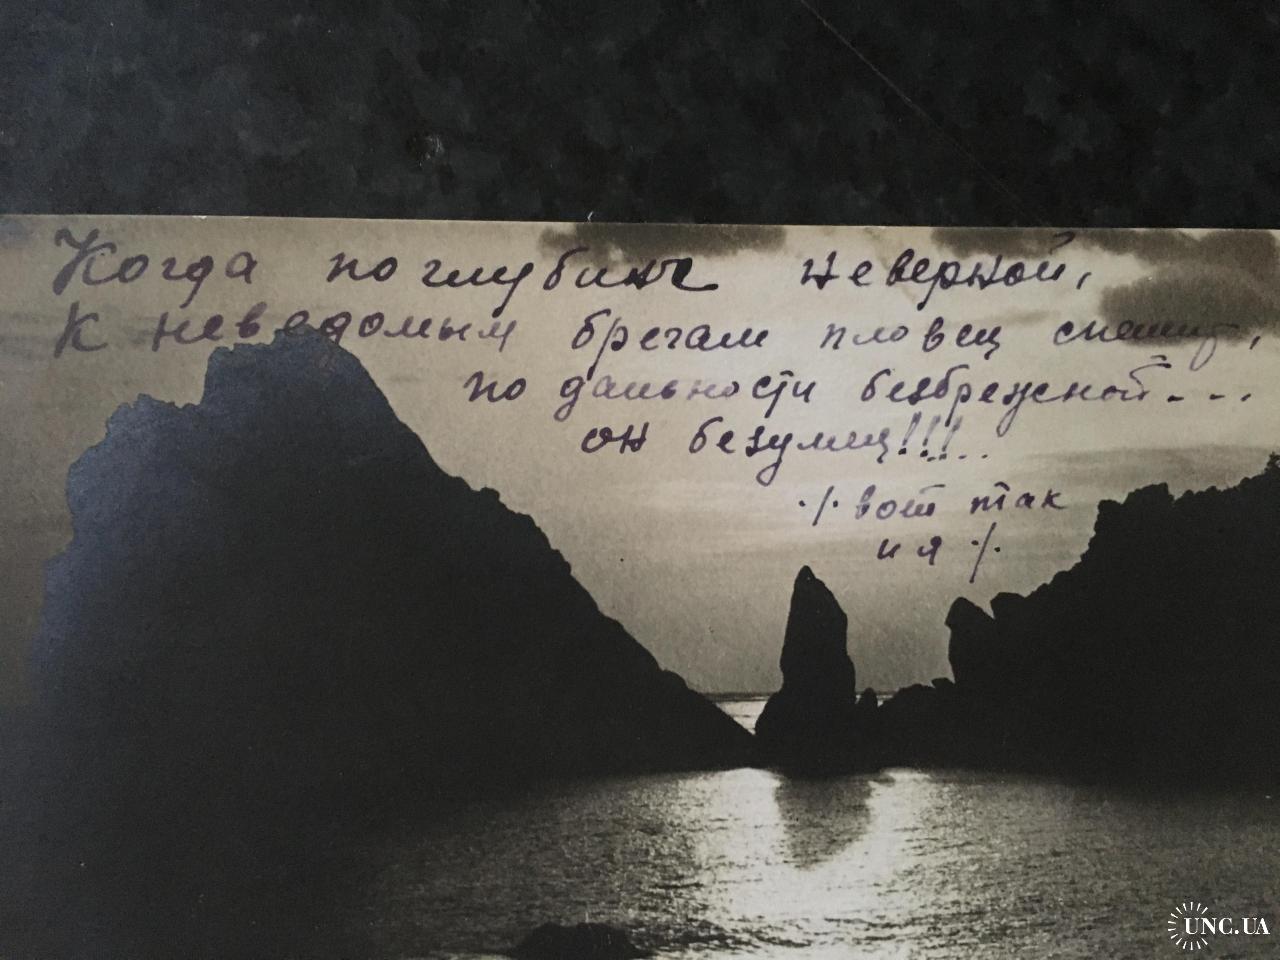 Когда по глубине неверной,
К неведомым брегам пловец спешит,
по дальности безбрежной---
он безумец!!!..
·/· вот так
и я ·/·
UNC.UA